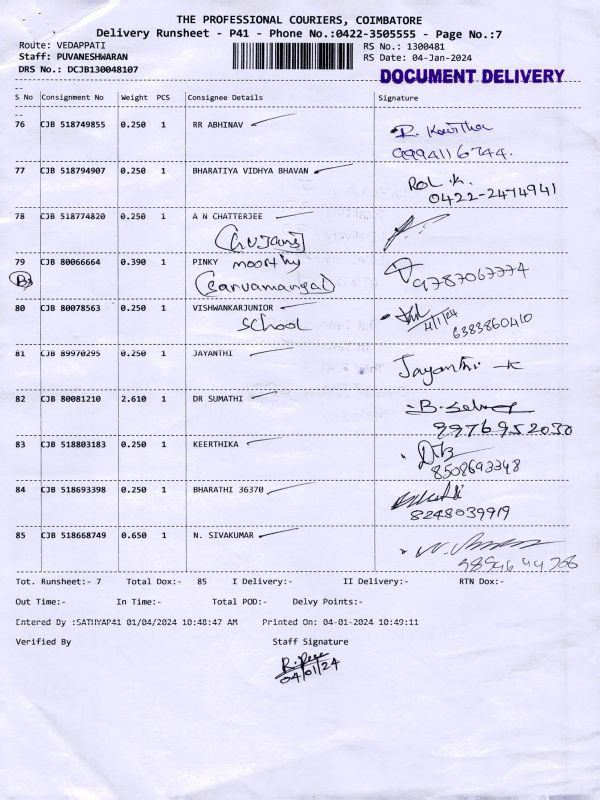 THE PROFESSIONAL COURIERS, COIMBATORE
Delivery Runsheet - P41 - Phone No.:0422-3505555 - Page No.:7
Route: VEDAPPATI RS No.: 1300481
Staff: PUVANESHWARAN RS Date: 04-Jan-2024
DRS No.: DCJB130048107
DOCUMENT DELIVERY
S No Consignment No Weight PCS Consignee Details Signature
76 CJB 518749855 0.250 1 RR ABHINAV R. Kavitha
9994116744.
77 CJB 518794907 0.250 1 BHARATIYA VIDHYA BHAVAN
0422-2474941
78 CJB 518774820 0.250 1 A N CHATTERJEE
79 CJB 80066664 0.390 1 PINKY moorthy 9787067774
B (Sarvamangal)
80 CJB 80078563 0.250 1 VISHWANKARJUNIOR 4/1/24
School 6383860410
81 CJB 89970295 0.250 1 JAYANTHI Jayanthi -K
82 CJB 80081210 2.610 1 DR SUMATHI
9976952030
83 CJB 518803183 0.250 1 KEERTHIKA
8508693348
84 CJB 518693398 0.250 1 BHARATHI 36370
8248039919
85 CJB 518668749 0.650 1 N. SIVAKUMAR
Tot. Runsheet:- 7 Total Dox:- 85 I Delivery:- II Delivery:- RTN Dox:-
Out Time:- In Time:- Total POD:- Delvy Points:-
Entered By :SATHYAP41 01/04/2024 10:48:47 AM Printed On: 04-01-2024 10:49:11
Verified By Staff Signature
04/01/24